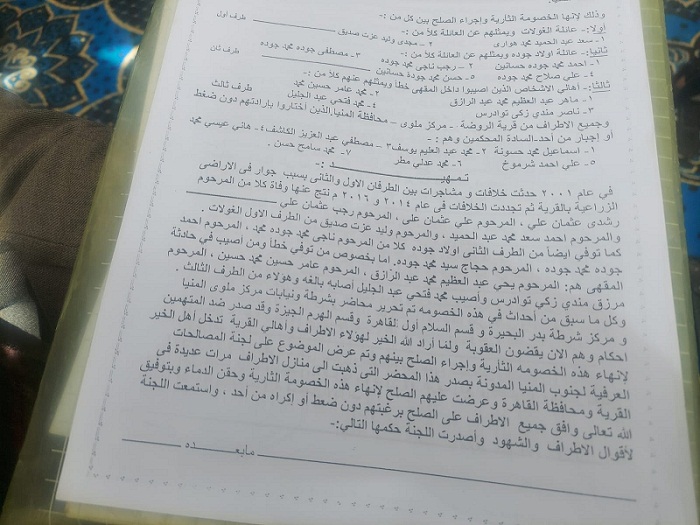 وذلك لإنها الخصومة الثارية وإجراء الصلح بين كل من :-
اولا:- عائلة الغولات ويمثلهم عن العائلة كلا من :-
١- سعد عبد الحميد محمد هوارى ٢ - مجدى وليد عزت صديق ــــــ طرف أول
ثانيا:- عائلة اولاد جوده ويمثلهم عن العائلة كلا من :-
١- احمد محمد جوده حسانين ٢ - رجب ناجى محمد جوده ٣ - مصطفى جوده محمد جوده
٤ - علي صلاح محمد جوده ٥ - حسن محمد جودة حسانين ــــــ طرف ثان
ثالثا:- اهالي الاشخاص الذين اصيبوا داخل المقهى خطأ ويمثلهم عنهم كلا من :-
١- ماهر عبد العظيم محمد عبد الرازق ٢ - محمد عامر حسين محمد
٣ - ناصر مندي زكى تواضرس ٤ - محمد فتحي عبد الجليل طرف ثالث
وجميع الاطراف من قرية الروضة - مركز ملوى – محافظة المنيا الذين أختاروا بارادتهم دون ضغط
أو إجبار من أحد السادة المحكمين وهم :-
١- اسماعيل محمد حسونة ٢- محمد عبد العليم يوسف ٣ – مصطفي عبد العزيز الكاشف ٤- هاني عيسي محمد
٥ - علي احمد شرموخ ٦- محمد عدلي مطر ٧ – محمد سامح حسن .
تمـهيـــــــــد :-
في عام ٢٠٠١ حدثت خلافات و مشاجرات بين الطرفان الاول والثانى بسبب جوار فى الاراضى
الزراعية بالقرية ثم تجددت الخلافات فى عام ٢٠١٤ و ٢٠١٦ م نتج عنها وفاة كلا من المرحوم
رشدى عثمان علي ، المرحوم علي عثمان على ، المرحوم رجب عثمان علي
والمرحوم احمد سعد محمد عبد الحميد ، والمرحوم وليد عزت صديق من الطرف الاول الغولات .
كما توفي ايضا من الطرف الثانى اولاد جوده كلا من المرحوم ناجى محمد جوده محمد ، المرحوم احمد
جوده محمد جوده ، المرحوم حجاج سيد محمد جوده. اما بخصوص من توفي خطأ ومن اصيب في حادثة
المقهى هم: المرحوم يحي عبد العظيم محمد عبد الرازق ، المرحوم عامر حسين محمد حسين ، المرحوم
مرزق مندي زكي تواضرس وأصيب محمد فتحي عبد الجليل أصابه بالغه وهولاء من الطرف الثالث .
وكل ما سبق من أحداث في هذه الخصومه تم تحرير محاضر بشرطة ونيابات مركز ملوى المنيا
و مركز شرطة بدر البحيرة و قسم السلام أول القاهرة وقسم الهرم الجيزة وقد صدر ضد المتهمين
احكام و هم الان يقضون العقوبة ولما أراد الله الخير لهولاء الاطراف وأهالي القرية تدخل اهل الخير
لإنهاء هذه الخصومه الثارية وإجراء الصلح بينهم وتم عرض الموضوع على لجنة المصالحات
العرفية لجنوب المنيا المدونة بصدر هذا المحضر التى ذهبت الى منازل الاطراف مرات عديدة فى
القرية ومحافظة القاهرة وعرضت عليهم الصلح لإنهاء هذه الخصومة الثارية وحقن الدماء وبتوفيق
الله تعالى وافق جميع الاطراف على الصلح برغبتهم دون ضغط أو إكراه من أحد ، واستمعت اللجنة
لأقوال الاطراف والشهود وأصدرت اللجنة حكمها التالي:-
ــــــ مابعـــــده ــــــ